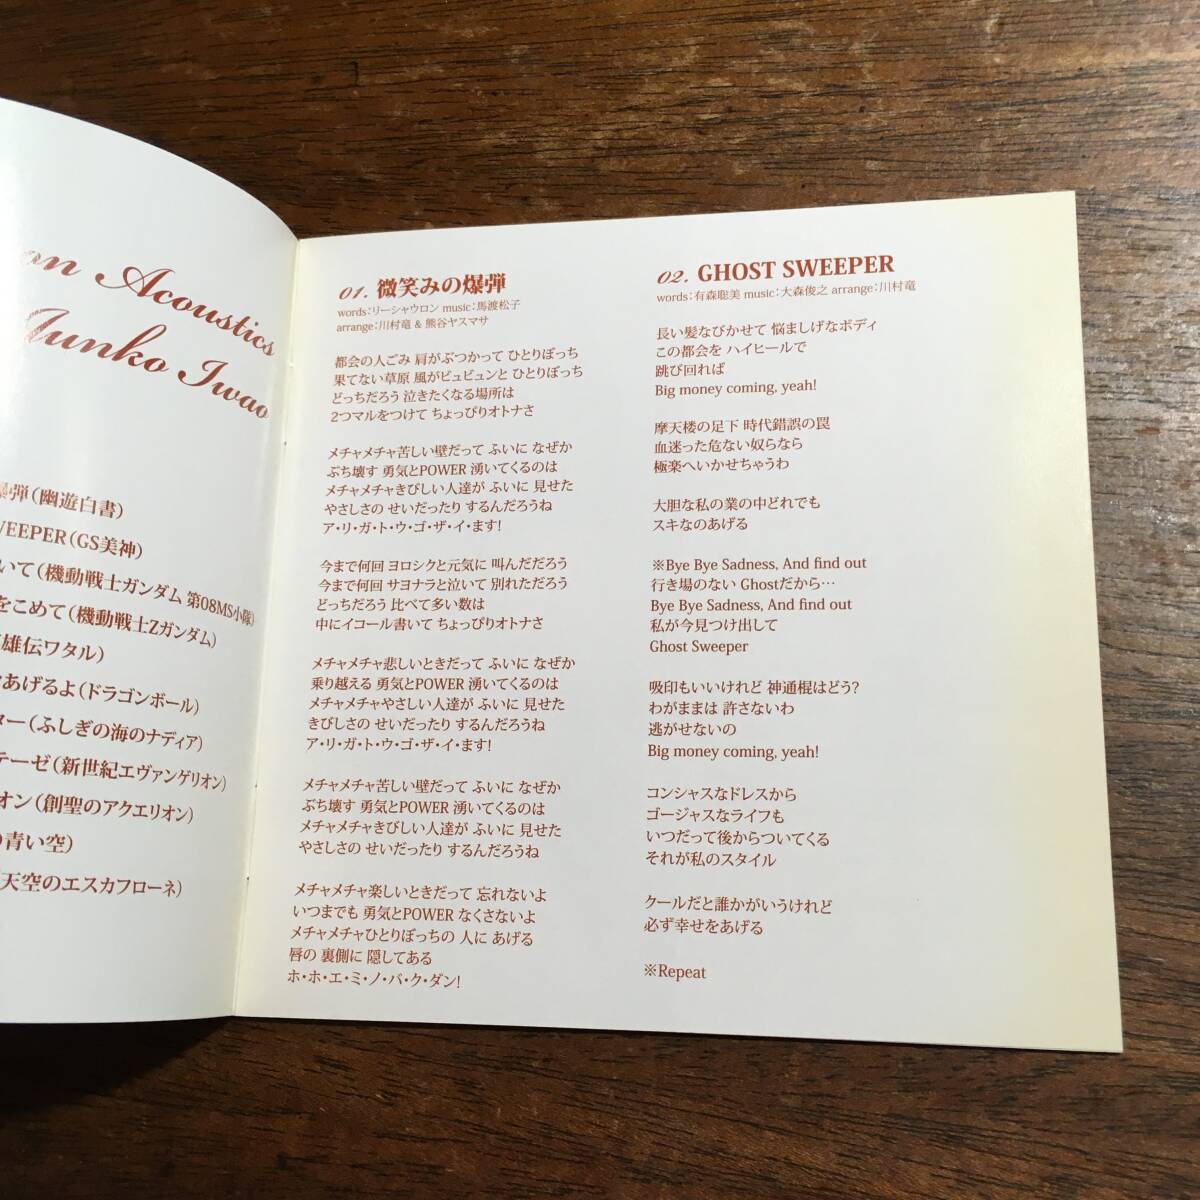 on Acoustics
Junko Iwao
爆弾(幽遊白書)
WEEPER(GS美神)
いて(機動戦士ガンダム 第08MS小隊)
をこめて(機動戦士Zガンダム)
雄伝ワタル)
あげるよ(ドラゴンボール)
ター(ふしぎの海のナディア)
テーゼ(新世紀エヴァンゲリオン)
オン(創聖のアクエリオン)
の青い空)
天空のエスカフローネ)
01. 微笑みの爆弾
words:リーシャウロン music:馬渡松子
arrange:川村竜 & 熊谷ヤスマサ
都会の人ごみ 肩がぶつかって ひとりぼっち
果てない草原 風がビュビュンと ひとりぼっち
どっちだろう 泣きたくなる場所は
2つマルをつけて ちょっぴりオトナさ
メチャメチャ苦しい壁だって ふいに なぜか
ぶち壊す 勇気とPOWER 湧いてくるのは
メチャメチャきびしい人達が ふいに 見せた
やさしさの せいだったり するんだろうね
ア・リ・ガ・ト・ウ・ゴ・ザ・イ・ます!
今まで何回 ヨロシクと元気に 叫んだだろう
今まで何回 サヨナラと泣いて 別れただろう
どっちだろう 比べて多い数は
中にイコール書いて ちょっぴりオトナさ
メチャメチャ悲しいときだって ふいに なぜか
乗り越える 勇気とPOWER 湧いてくるのは
メチャメチャやさしい人達が ふいに 見せた
きびしさの せいだったり するんだろうね
ア・リ・ガ・ト・ウ・ゴ・ザ・イ・ます!
メチャメチャ苦しい壁だって ふいに なぜか
ぶち壊す 勇気とPOWER 湧いてくるのは
メチャメチャきびしい人達が ふいに 見せた
やさしさの せいだったり するんだろうね
メチャメチャ楽しいときだって 忘れないよ
いつまでも 勇気とPOWER なくさないよ
メチャメチャひとりぼっちの 人に あげる
唇の 裏側に 隠してある
ホ・ホ・エ・ミ・ノ・バ・ク・ダン!
02. GHOST SWEEPER
words:有森聡美 music:大森俊之 arrange:川村竜
長い髪なびかせて 悩ましげなボディ
この都会を ハイヒールで
跳び回れば
Big money coming, yeah!
摩天楼の足下 時代錯誤の罠
血迷った危ない奴らなら
極楽へいかせちゃうわ
大胆な私の業の中どれでも
スキなのあげる
※Bye Bye Sadness, And find out
行き場のない Ghostだから…
Bye Bye Sadness, And find out
私が今見つけ出して
Ghost Sweeper
吸印もいいけれど 神通棍はどう?
わがままは 許さないわ
逃がせないの
Big money coming, yeah!
コンシャスなドレスから
ゴージャスなライフも
いつだって後からついてくる
それが私のスタイル
クールだと誰かがいうけれど
必ず幸せをあげる
※Repeat